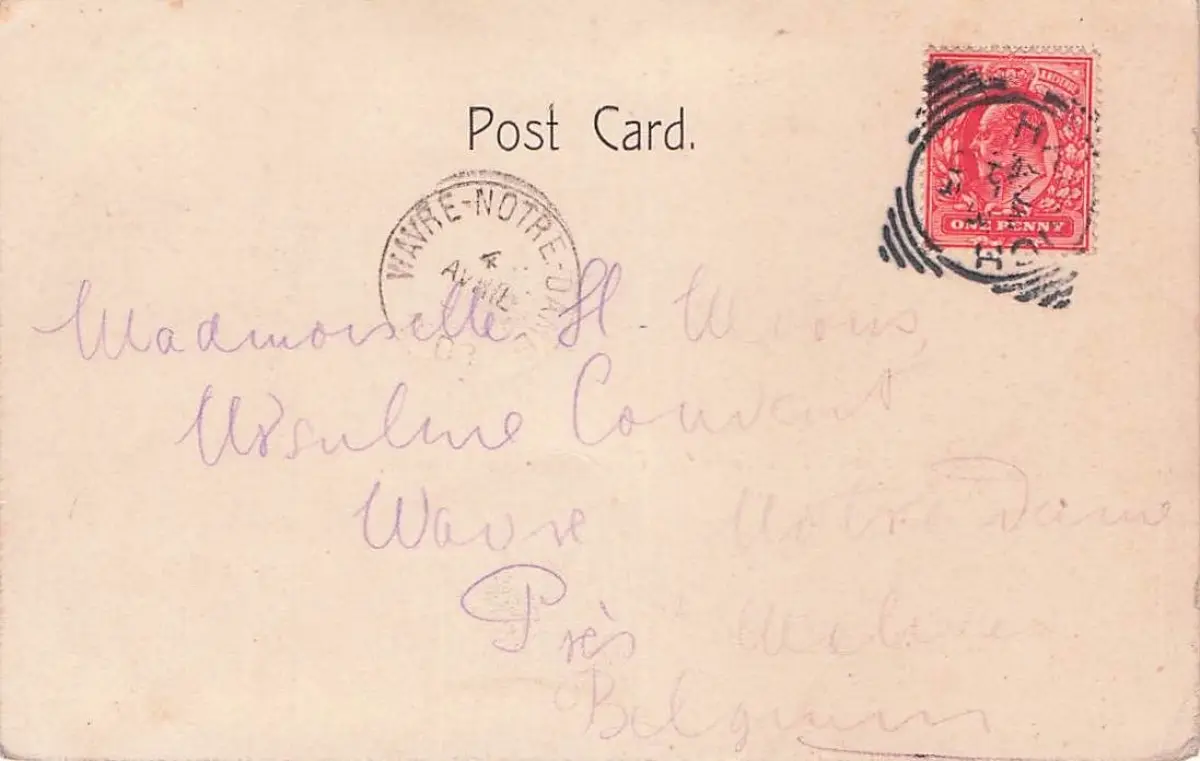 Post Card.
ONE PENNY
WAVRE-NOTRE-DA
4
AVRIL
03
Mademoiselle H.
Ursuline Convent
Wavre Notre Dame
Près Malines
Belgium